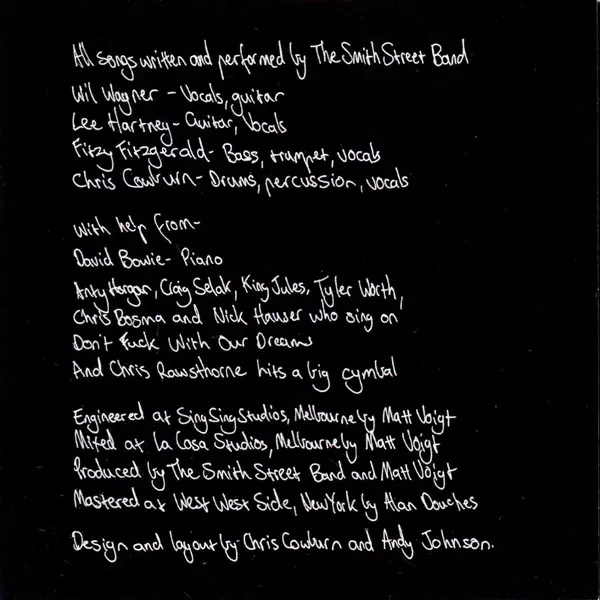 All songs written and performed by The Smith Street Band
Wil Wagner - Vocals, guitar
Lee Hartney - Guitar, Vocals
Fitzy Fitzgerald - Bass, trumpet, vocals
Chris Cowburn - Drums, percussion, vocals
With help from -
David Bowie - Piano
Anty Horgan, Craig Selak, King Jules, Tyler Worth,
Chris Bosma and Nick Hauser who sing on
Don't Fuck With Our Dreams
And Chris Rawsthorne hits a big cymbal
Engineered at Sing Sing Studios, Melbourne by Matt Voigt
Mixed at La Casa Studios, Melbourne by Matt Voigt
Produced by The Smith Street Band and Matt Voigt
Mastered at West West Side, New York by Alan Douches
Design and layout by Chris Cowburn and Andy Johnson.